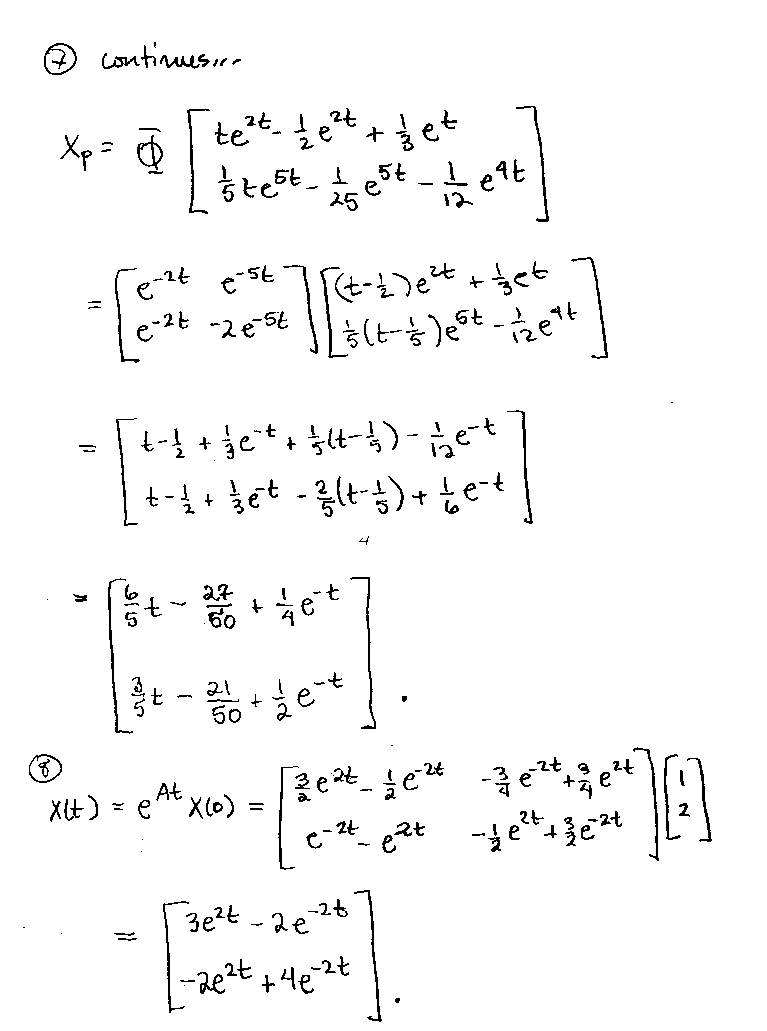 ⑦ continues...
Xp = Φ [ te^{2t} - 1/2 e^{2t} + 1/3 e^t ; 1/5 te^{5t} - 1/25 e^{5t} - 1/12 e^{4t} ]
= [ e^{-2t} e^{-5t} ; e^{-2t} -2e^{-5t} ] [ (t-1/2)e^{2t} + 1/3 e^t ; 1/5(t-1/5)e^{5t} - 1/12 e^{4t} ]
= [ t-1/2 + 1/3 e^{-t} + 1/5(t-1/5) - 1/12 e^{-t} ; t-1/2 + 1/3 e^{-t} - 2/5(t-1/5) + 1/6 e^{-t} ]
4
= [ 6/5 t - 27/50 + 1/4 e^{-t} ; 3/5 t - 21/50 + 1/2 e^{-t} ] .
⑧
X(t) = e^{At} X(0) = [ 3/2 e^{2t} - 1/2 e^{-2t} -3/4 e^{-2t} + 3/4 e^{2t} ; e^{-2t} - e^{2t} -1/2 e^{2t} + 3/2 e^{-2t} ] [ 1 ; 2 ]
= [ 3e^{2t} - 2e^{-2t} ; -2e^{2t} + 4e^{-2t} ] .